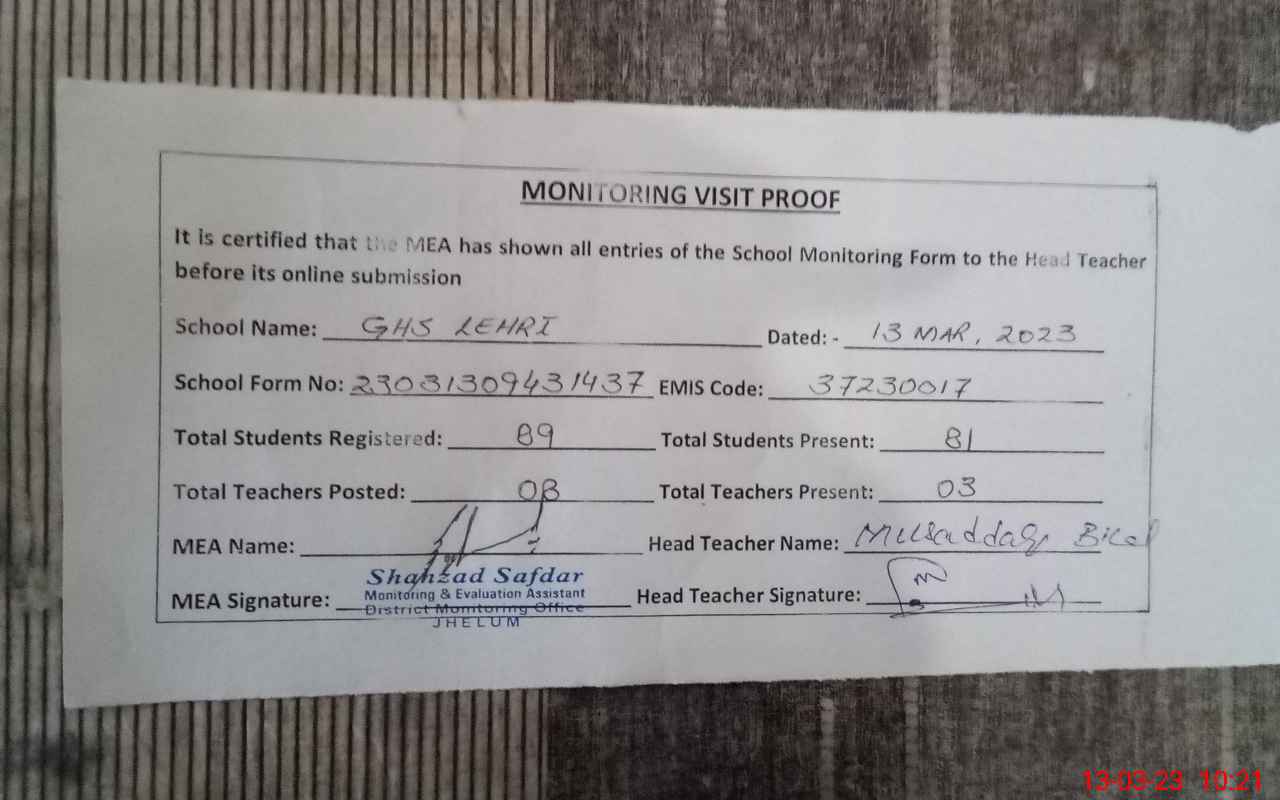 MONITORING VISIT PROOF
It is certified that the MEA has shown all entries of the School Monitoring Form to the Head Teacher
before its online submission
School Name: GHS LEHRI Dated: - 13 MAR, 2023
School Form No: 23031309431437 EMIS Code: 37230017
Total Students Registered: 89 Total Students Present: 81
Total Teachers Posted: 03 Total Teachers Present: 03
MEA Name: Head Teacher Name: Mussaddaq Bilal
Shahzad Safdar
Monitoring & Evaluation Assistant
MEA Signature: Head Teacher Signature:
District Monitoring Office
JHELUM
13-03-23 10:21